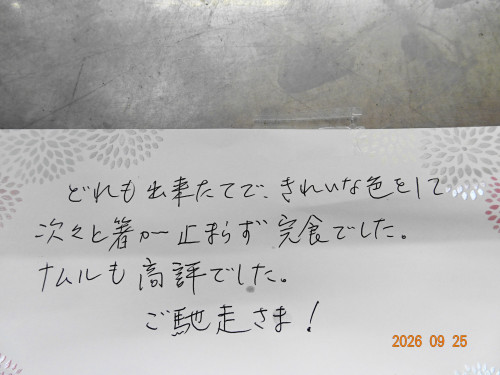 どれも出来たてで、きれいな色をして
次々と箸が止まらず完食でした。
ナムルも高評でした。
ご馳走さま!
2026 09 25